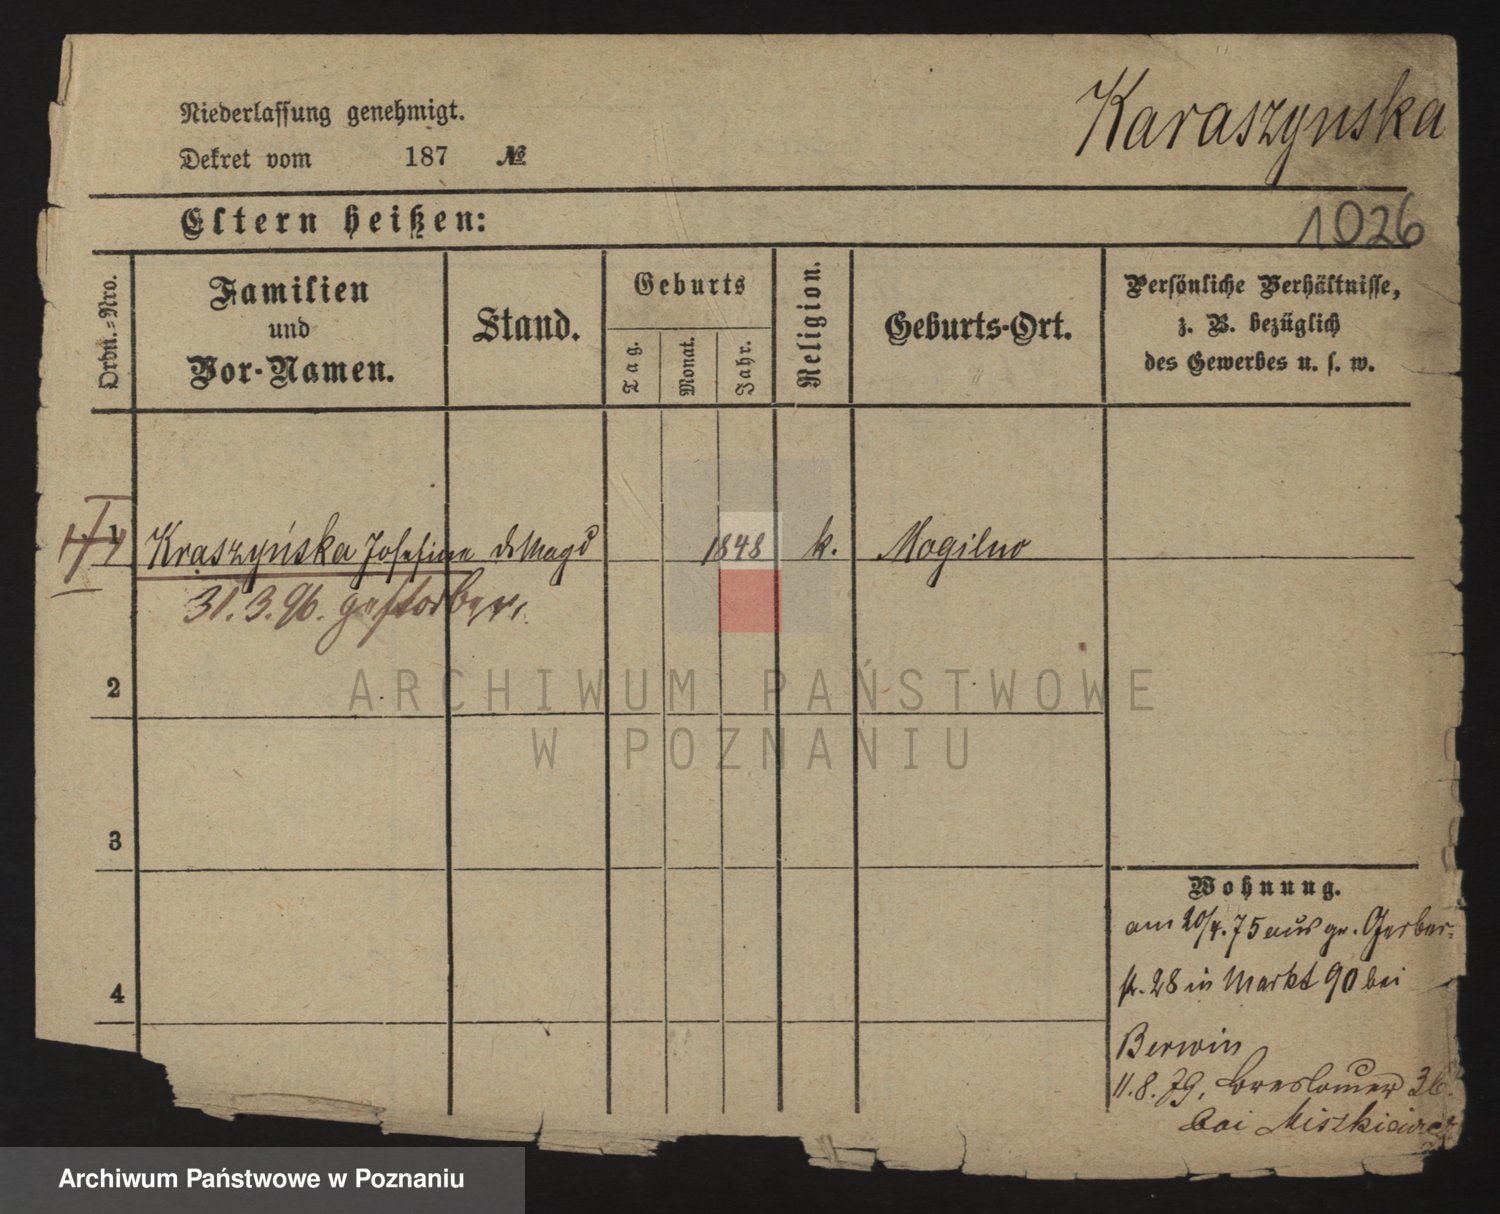 Karaszynska
Niederlassung genehmigt.
Dekret vom 187 №
Eltern heißen:
1026
Ordn.-Nro.
Familien
und
Vor-Namen.
Stand.
Geburts
Tag.
Monat.
Jahr.
Religion.
Geburts-Ort.
Persönliche Verhältnisse,
z. B. bezüglich
des Gewerbes u. s. w.
1 Kraszyńska Josefine 1848 k. Mogilno
31.3.96. gestorben.
2
ARCHIWUM PAŃSTWOWE
W POZNANIU
3
4
Wohnung.
am 20/4.75 aus gr. Gerber-
str. 28 in Markt 90 bei
Berwin
11.8.79, Breslauer 36.
bei
Archiwum Państwowe w Poznaniu